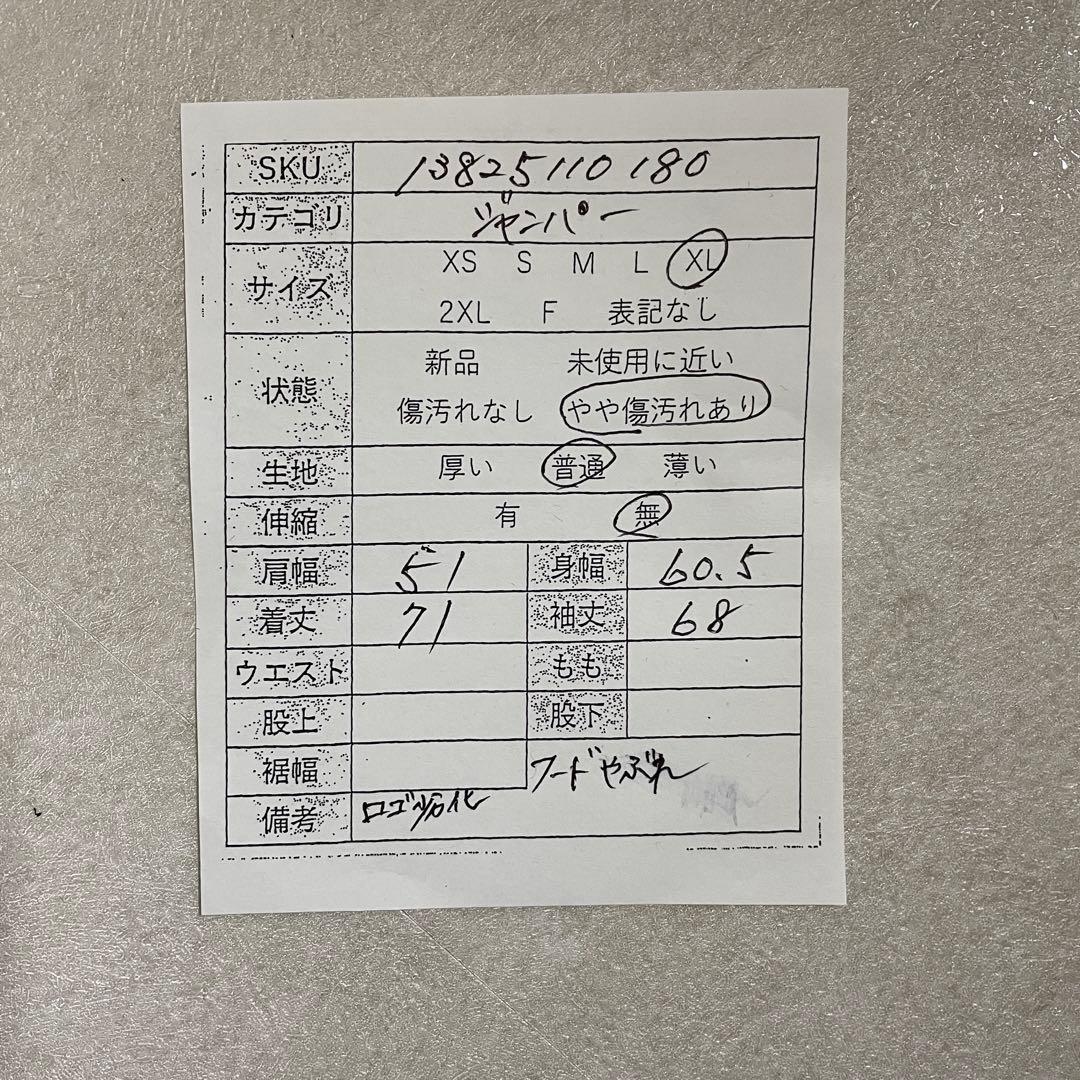 SKU 13825110180
カテゴリ ジャンパー
サイズ XS S M L XL
2XL F 表記なし
状態 新品 未使用に近い
傷汚れなし やや傷汚れあり
生地 厚い 普通 薄い
伸縮 有 無
肩幅 51 身幅 60.5
着丈 71 袖丈 68
ウエスト もも
股上 股下
裾幅 フードやぶれ
備考 ロゴ劣化